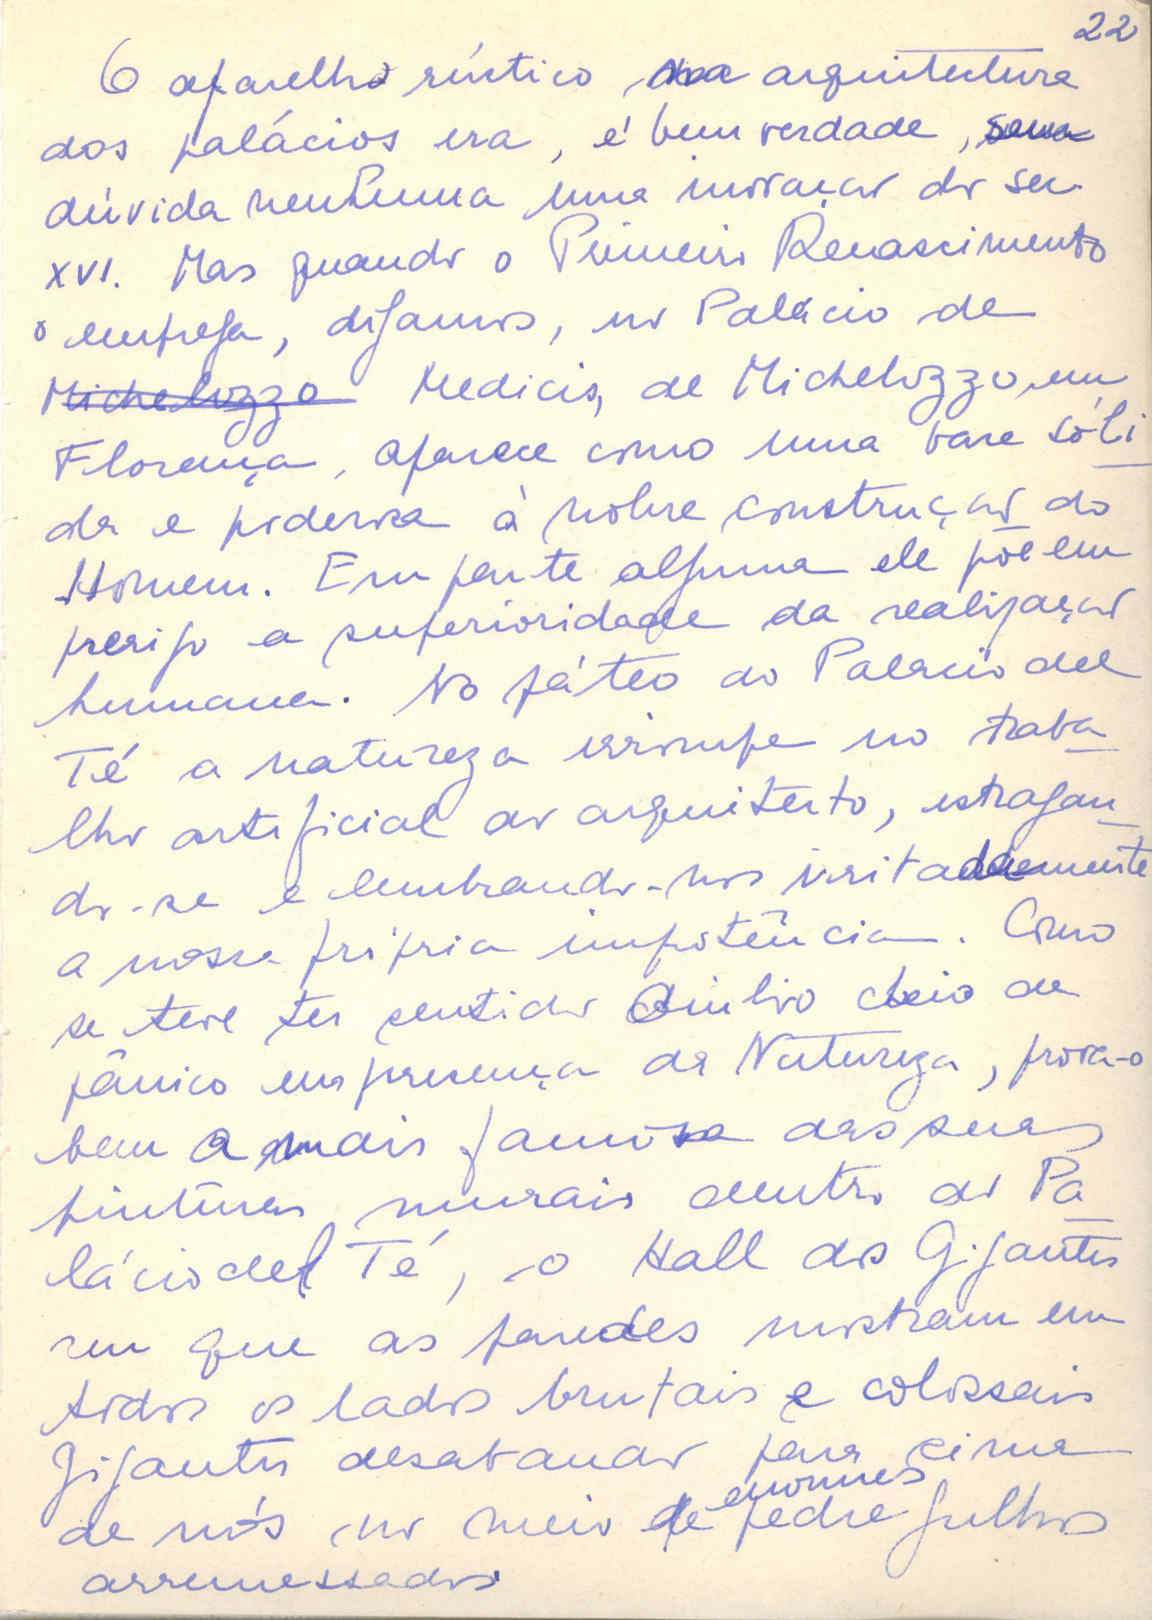 22
O aparelho rústico na arquitectura
dos palácios era, é bem verdade, sem
dúvida nenhuma uma inovação do sec.
XVI. Mas quando o Primeiro Renascimento
o emprega, digamos, no Palácio de
Michelozzo Medicis, de Michelozzo, em
Florença, aparece como uma base sóli
da e poderosa à nobre construção do
Homem. Em parte alguma ele põe em
perigo a superioridade da realização
humana. No páteo do Palacio del
Té a natureza irrompe no traba
lho artificial do arquitecto, estragan
do-se e lembrando-nos irritadamente
a nossa própria impotência. Como
se teve ter sentido Giulio cheio de
pânico em presença da Natureza, prova-o
bem a mais famosa das suas
pinturas murais dentro do Pa
lácio del Té, o Hall dos Gigantes
em que as paredes mostram em
todos os lados brutais e colossais
Gigantes desabando para cima
de nós no meio de enormes pedregulhos
arremessados